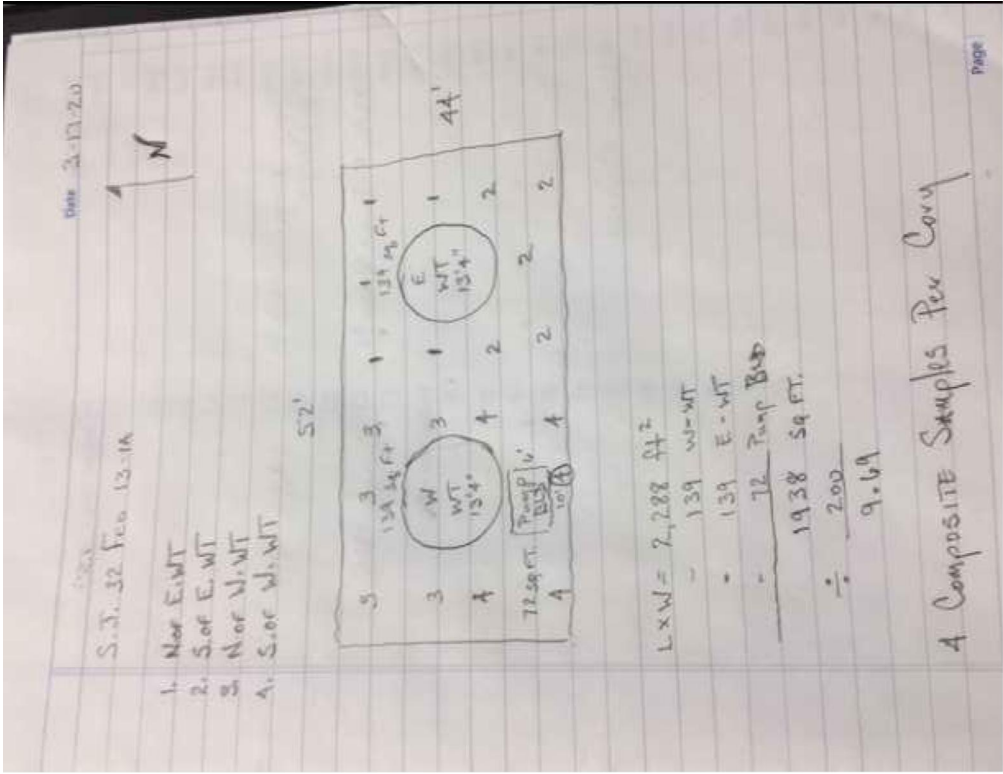 Date 3-17-20
N
1. N.of E.WT
2. S.of E.WT
3. N.of W.WT
4. S.of W.WT
52'
3 3 3 1 1 1
139 sq Ft 139 sq Ft
44'
3 W WT 13'4" 3 1 E WT 13'4" 1
4 4 2 2
72 SQ FT. Pump BLD 6' 2
4 10' 4 4 2 2
L x W = 2,288 ft²
- 139 W-WT
- 139 E-WT
- 72 Pump BLD
1938 SQ FT.
÷ 200
9.69
4 Composite Samples Per Cory
Page